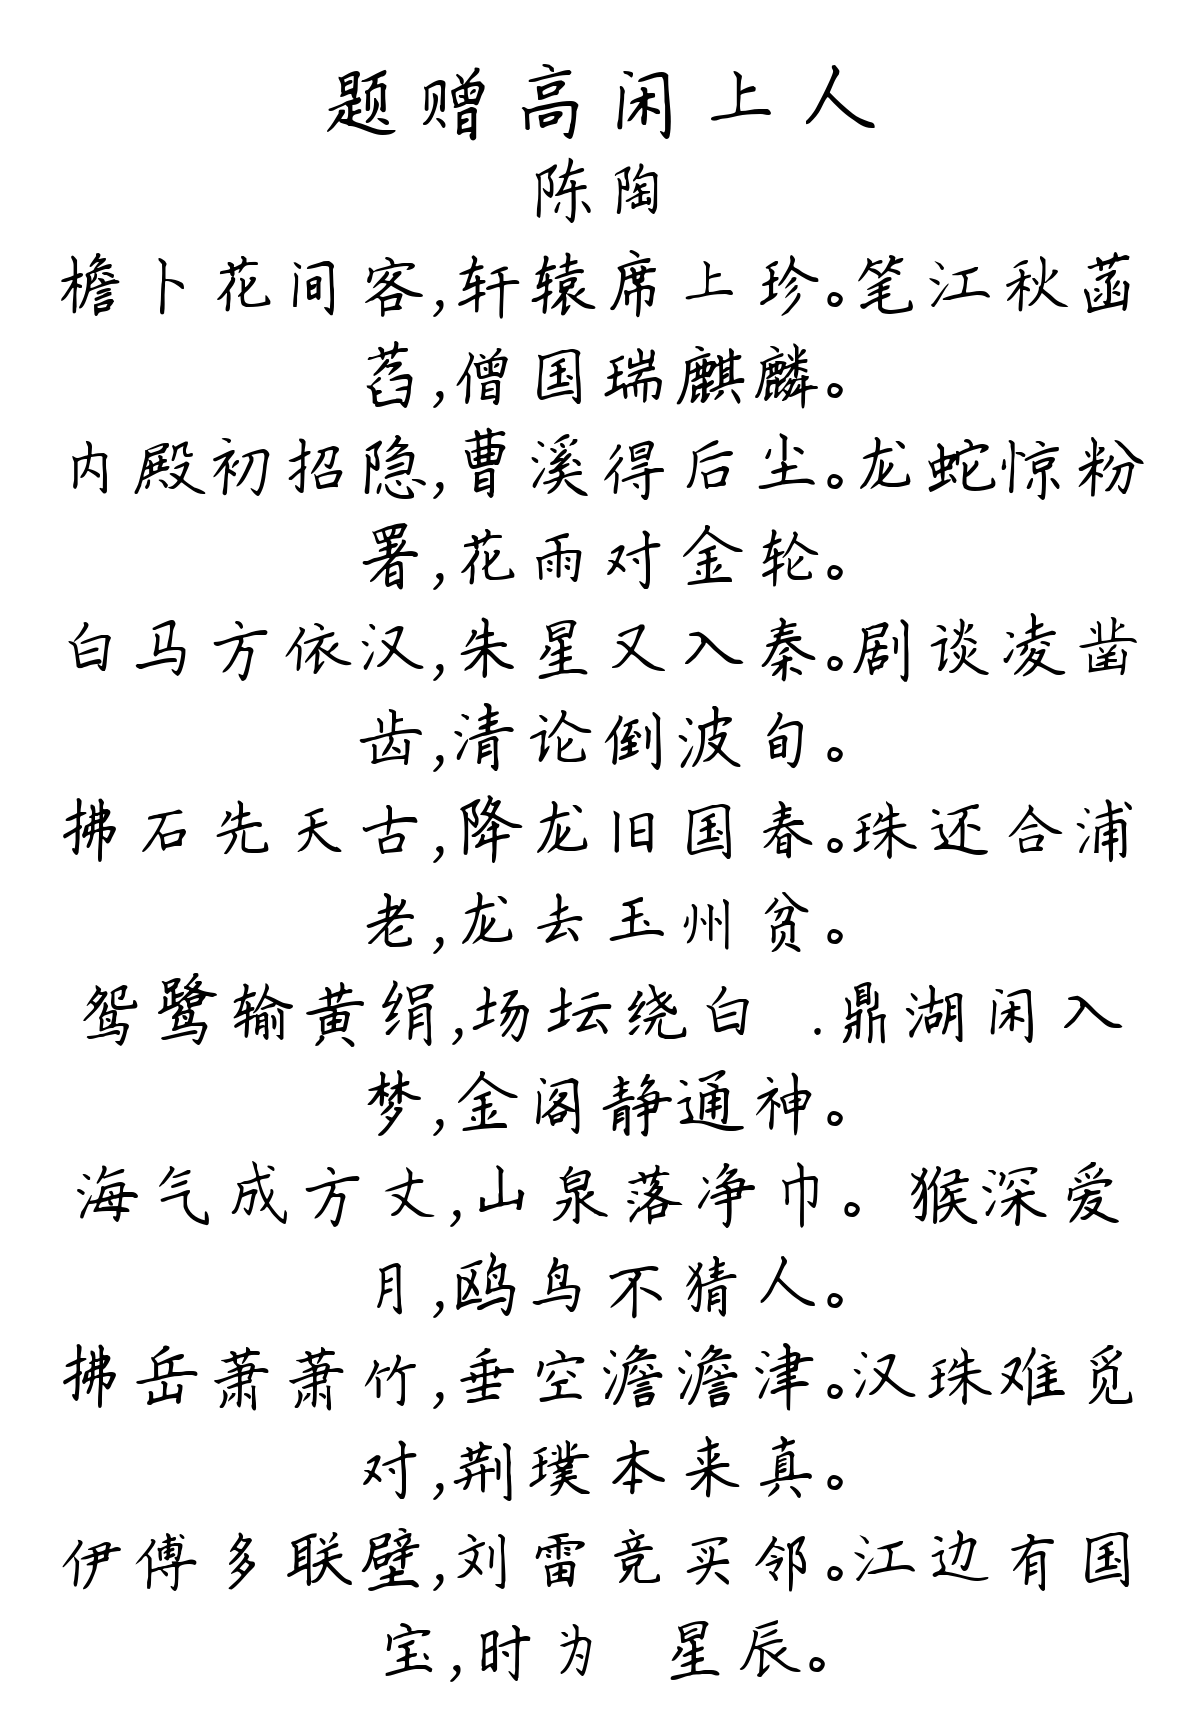 题赠高闲上人
陈陶
檐卜花间客,轩辕席上珍。笔江秋菡
萏,僧国瑞麒麟。
内殿初招隐,曹溪得后尘。龙蛇惊粉
署,花雨对金轮。
白马方依汉,朱星又入秦。剧谈凌凿
齿,清论倒波旬。
拂石先天古,降龙旧国春。珠还合浦
老,龙去玉州贫。
鸳鹭输黄绢,场坛绕白 .鼎湖闲入
梦,金阁静通神。
海气成方丈,山泉落净巾。 猴深爱
月,鸥鸟不猜人。
拂岳萧萧竹,垂空澹澹津。汉珠难觅
对,荆璞本来真。
伊傅多联壁,刘雷竞买邻。江边有国
宝,时为 星辰。